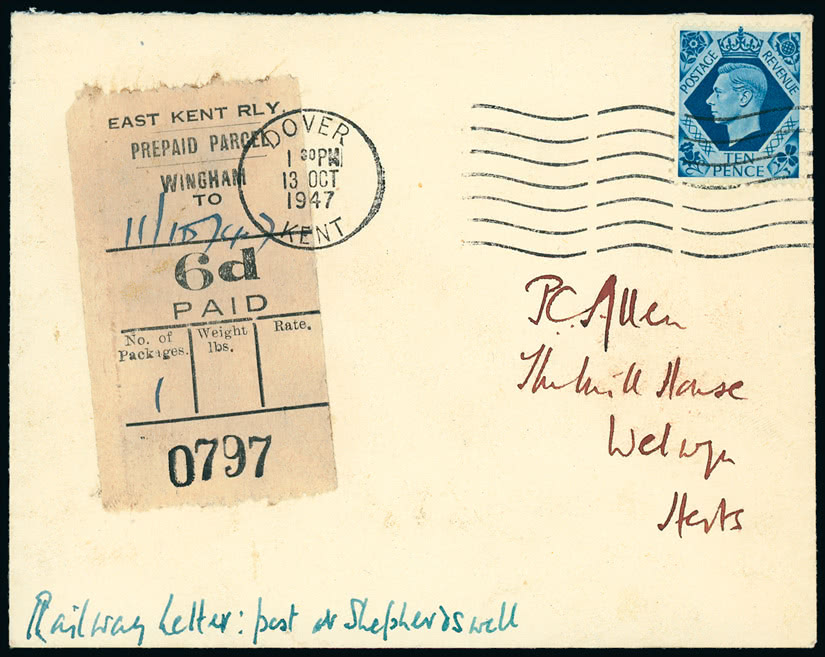 EAST KENT RLY.
PREPAID PARCEL
WINGHAM
TO
11/10/47
6d
PAID
No. of Packages.
Weight lbs.
Rate.
1
0797
DOVER
1 30PM
13 OCT
1947
KENT
POSTAGE REVENUE
TEN
PENCE
P.C. Allen
The Mill House
Welwyn
Herts
Railway Letter: post at Shepherdswell